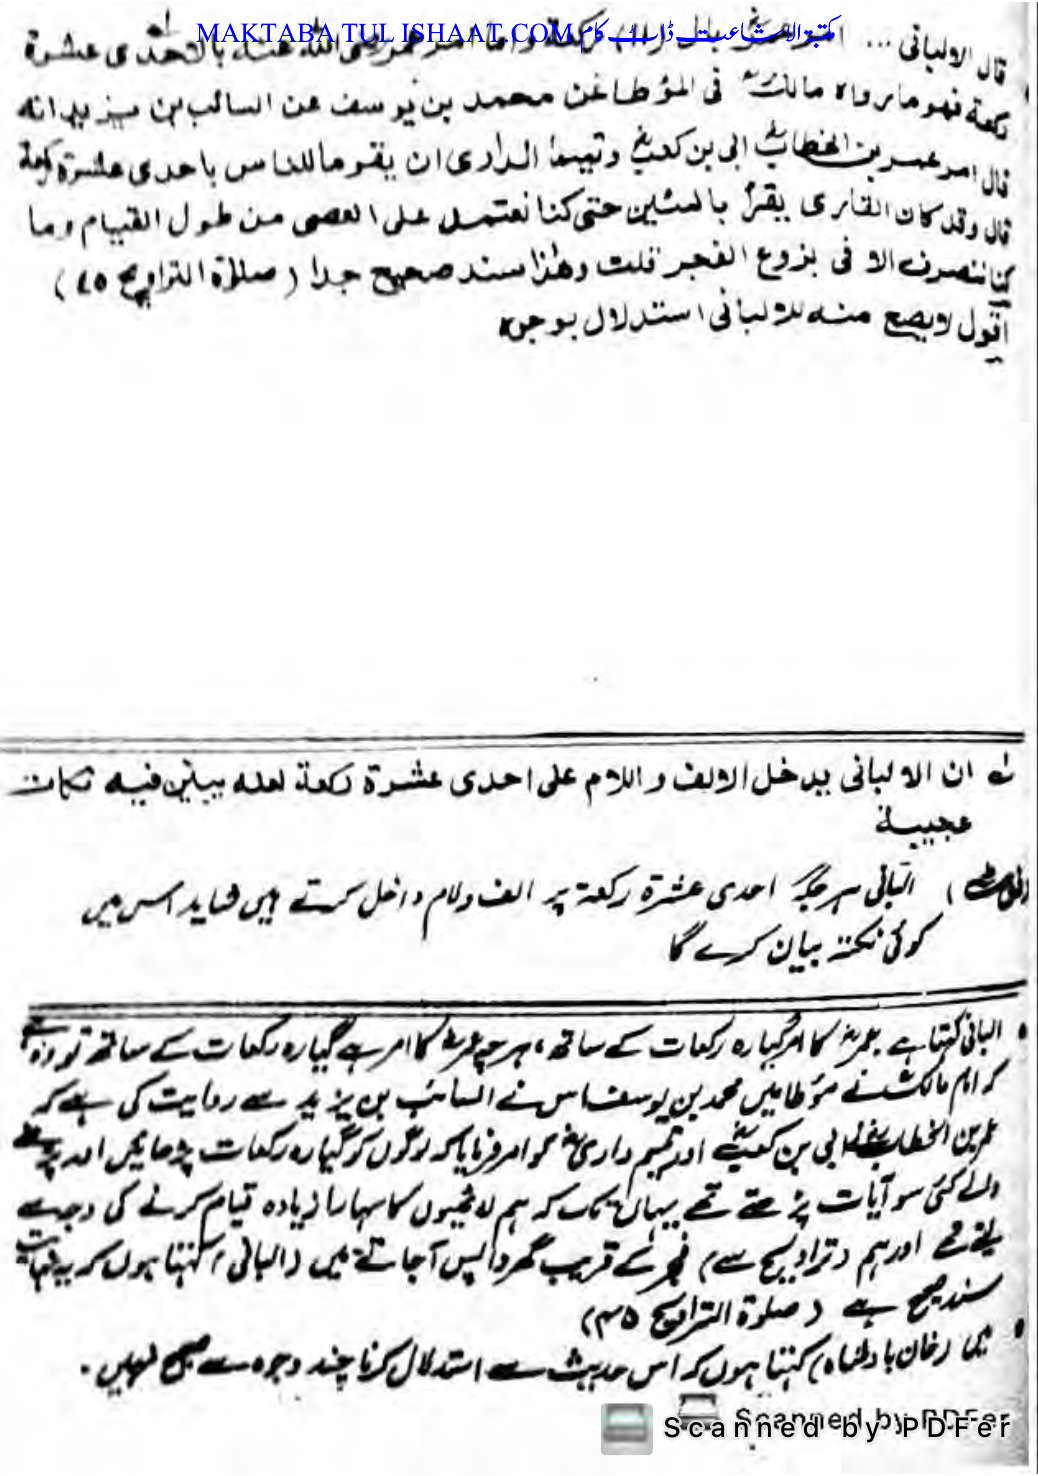 MAKTABA TUL ISHAAT.COM مکتبۃ الاشاعت ڈاٹ کام
قال الالبانی ... ركعة واما امر عمر رضی الله عنه بالاحدی عشرة
ركعة فهو ما رواه مالك فی المؤطا عن محمد بن يوسف عن السائب بن يزيد انه
قال امر عمر بن الخطاب ابی بن كعب وتميما الداری ان يقوما للناس باحدی عشرة ركعة
قال وقد كان القاری يقرأ بالمئين حتی كنا نعتمد علی العصی من طول القيام وما
كنا ننصرف الا فی بزوغ الفجر قلت وهذا سند صحيح جدا (صلاة التراويح ٤٥)
اقول لا يصح منه للالبانی استدلال بوجوه
ان الالبانی يدخل الالف واللام علی احدی عشرة ركعة لعله يبين فيه نكات
عجيبة
البانی ہر جگہ احدی عشرة ركعة پر الف ولام داخل کرتے ہیں شاید اس میں
کوئی نکتہ بیان کرے گا
البانی کہتا ہے عمرؓ کا امر گیارہ رکعات کے ساتھ، ہر چہ عمرؓ کا امر ہے گیارہ رکعات کے ساتھ تو وہ ہے
کہ امام مالکؒ نے مؤطا میں محمد بن یوسف اس نے السائب بن یزید سے روایت کی ہے کہ
عمر بن الخطابؓ نے ابی بن کعبؓ اور تمیم داریؓ کو امر فرمایا کہ لوگوں کو گیارہ رکعات پڑھائیں اور پڑھنے
والے کئی سو آیات پڑھتے تھے یہاں تک کہ ہم لاٹھیوں کا سہارا زیادہ قیام کرنے کی وجہ سے
لیتے تھے اور ہم (تراویح سے) فجر کے قریب گھر واپس آجاتے ہیں (البانی) کہتا ہوں کہ یہ نہایت
سند صحیح ہے (صلوة التراویح ٤٥)
میں (خان بادشاہ) کہتا ہوں کہ اس حدیث سے استدلال کرنا چند وجوہ سے صحیح نہیں۔
Scanned by PDFer
Scanned by PDFer